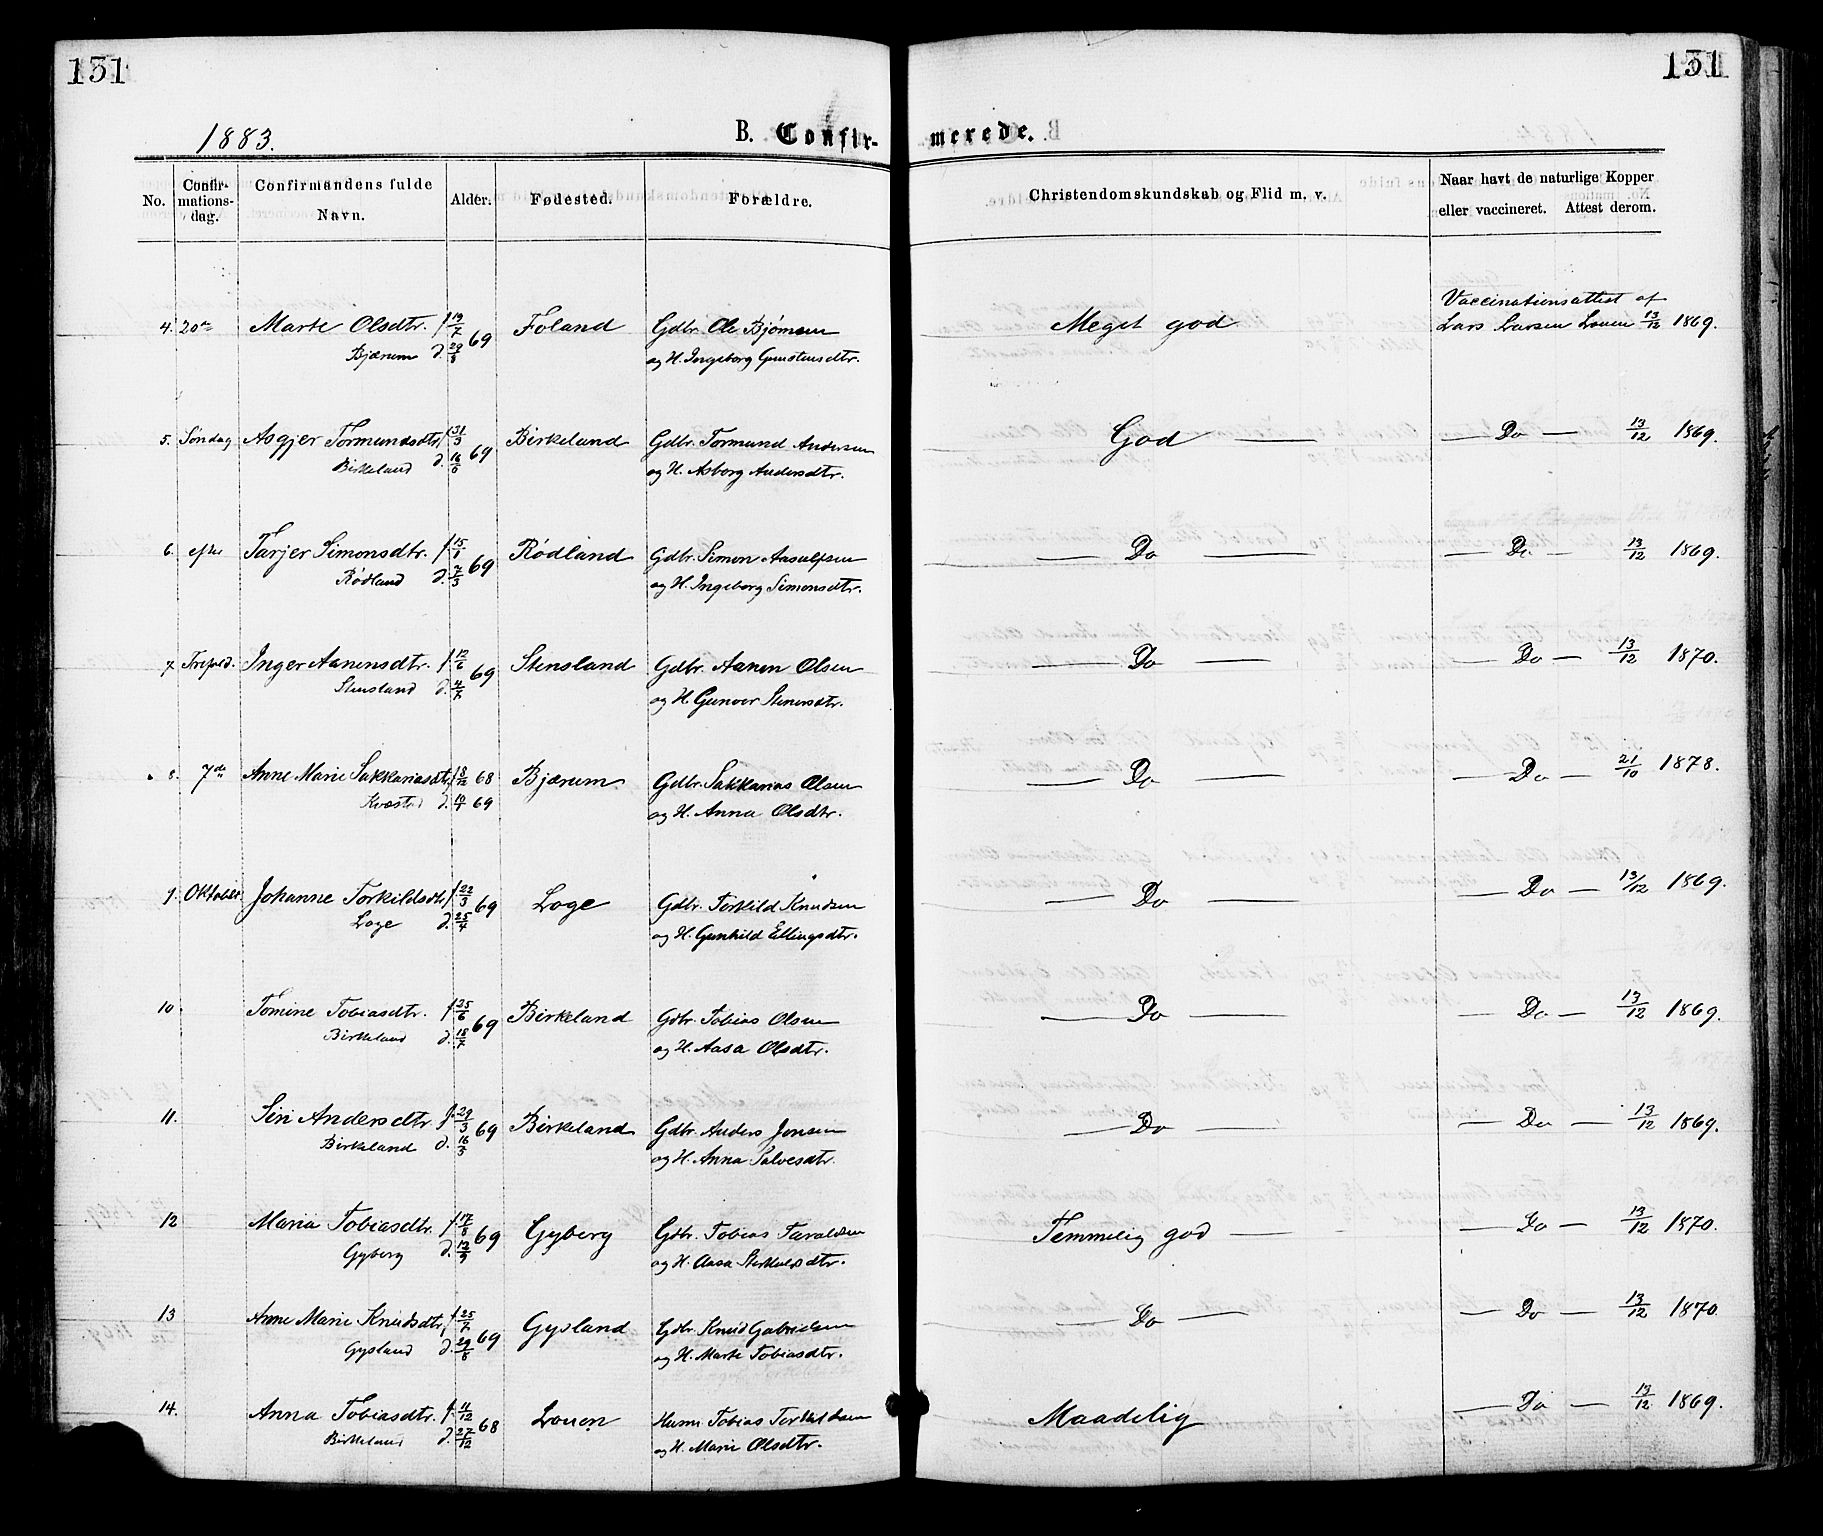 131
131
1883.
B. Confir-
merede.
No.
Confir-
mations-
dag.
Confirmandens fulde
Navn.
Alder.
Fødested.
Forældre.
Christendomskundskab og Flid m. v.
Naar havt de naturlige Kopper
eller vaccineret. Attest derom.
4. 20de Marte Olsdtr. f 19/7 69 Foland Gdbr. Ole Bjørnsen Meget god Vaccinationsattest af
Bjærum d. 29/8 og H. Ingeborg Gunstensdtr. Lars Larsen Louen 13/12 1869.
5. Søndag Asgjer Tormundsdtr. f 31/3 69 Birkeland Gdbr. Tormund Andersen God — — Do — 13/12 1869.
Birkeland d. 16/5 og H. Asborg Andersdtr.
6. efter Tarjer Simonsdtr. f 15/1 69 Rødland Gdbr. Simon Aasulfsen — Do — — Do — 13/12 1869.
Rødland d. 7/3 og H. Ingeborg Simonsdtr.
7. Trefold. Inger Aanensdtr. f 12/6 69 Stensland Gdbr. Aanen Olsen — Do — — Do — 13/12 1870.
Stensland d. 4/7 og H. Gunvor Stenersdtr.
8. 7de Anne Marie Sakkariasdtr. f 18/12 68 Bjærum Gdbr. Sakkarias Olsen — Do — — Do — 21/10 1878.
Kvæstad d. 10/1 69 og H. Anna Olsdtr.
9. Oktober. Johanne Torkildsdtr. f 22/3 69 Loge Gdbr. Torkild Knudsen — Do — — Do — 13/12 1869.
Loge d. 25/4 og H. Gunhild Ellingsdtr.
10. Tomine Tobiasdtr. f 25/6 69 Birkeland Gdbr. Tobias Olsen — Do — — Do — 13/12 1869.
Birkeland d. 18/7 og H. Aasa Olsdtr.
11. Siri Andersdtr. f. 29/3 69 Birkeland Gdbr. Anders Jonsen — Do — — Do — 13/12 1869.
Birkeland d. 16/5 og H. Anna Salvesdtr.
12 Maria Tobiasdtr. f 17/8 69 Gyberg Gdbr. Tobias Taraldsen Temmelig god — — Do — 13/12 1870.
Gyberg d. 12/9 og H. Aasa
13 Anne Marie Knudsdtr. f 25/7 69 Gysland Gdbr. Knud Gabrielsen — Do — — Do — 13/12 1870.
Gysland d. 29/8 og H. Marte Tobiasdtr.
14. Anna Tobiasdtr. f. 11/12 68 Louen Husm. Tobias Torkildsen Maadelig — Do — 13/12 1869.
Birkeland d. 27/12 og H. Marie Olsdtr.